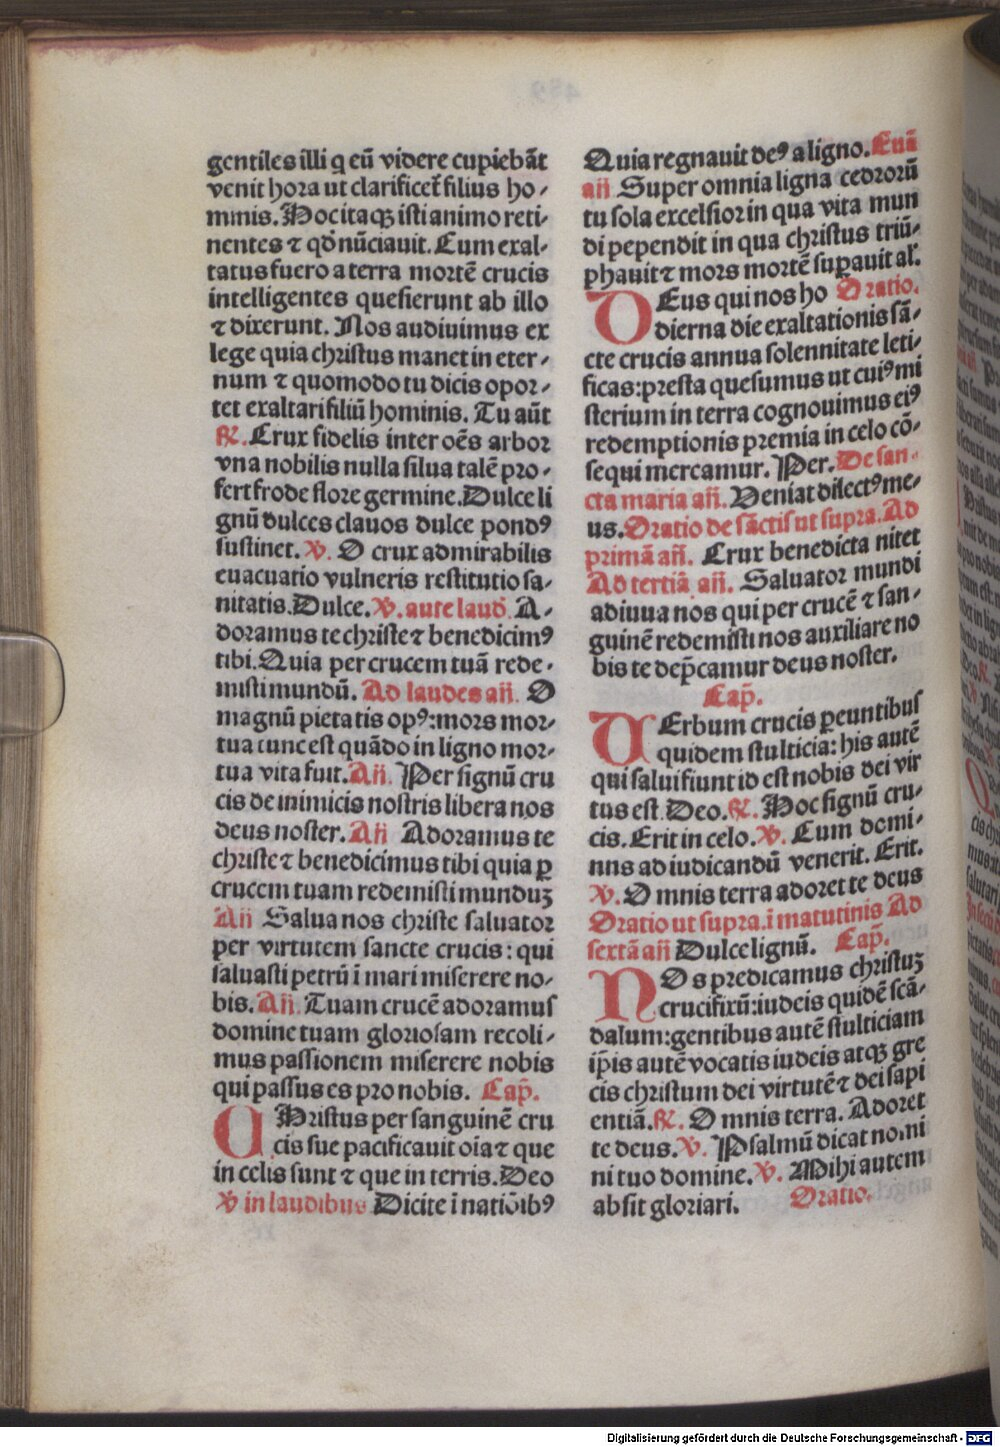 gentiles illi q eū videre cupiebāt
venit hora ut clarificet̄ filius ho-
minis. Hoc itaqꝫ isti animo reti-
nentes ⁊ qđ nūciauit. Cum exal-
tatus fuero a terra mortē crucis
intelligentes quesierunt ab illo
⁊ dixerunt. Nos audiuimus ex
lege quia christus manet in eter-
num ⁊ quomodo tu dicis opor-
tet exaltari filiū hominis. Tu aūt
℟. Crux fidelis inter oēs arbor
vna nobilis nulla silua talē pro-
fert frōde flore germine. Dulce li
gnū dulces clauos dulce pondꝰ
sustinet. ℣. O crux admirabilis
euacuatio vulneris restitutio sa-
nitatis. Dulce. ℣. ante laud. A-
doramus te christe ⁊ benedicimꝰ
tibi. Quia per crucem tuā rede-
misti mundū. Ad laudes añ. O
magnū pietatis opꝰ: mors mor-
tua tunc est quādo in ligno mor-
tua vita fuit. Añ. Per signū cru
cis de inimicis nostris libera nos
deus noster. Añ Adoramus te
christe ⁊ benedicimus tibi quia ꝑ
crucem tuam redemisti munduꝫ
Añ Salua nos christe saluator
per virtutem sancte crucis: qui
saluasti petrū ī mari miserere no-
bis. Añ. Tuam crucē adoramus
domine tuam gloriosam recoli-
mus passionem miserere nobis
qui passus es pro nobis. Cap̄.
CHristus per sanguinē cru
cis sue pacificauit oīa ⁊ que
in celis sunt ⁊ que in terris. Deo
℣ in laudibus Dicite ī natiōibꝰ
Quia regnauit deꝰ a ligno. Euā
añ Super omnia ligna cedrorū
tu sola excelsior in qua vita mun
di pependit in qua christus triū-
phauit ⁊ mors mortē suꝑauit al'.
DEus qui nos ho Oratio.
dierna die exaltationis sā-
cte crucis annua solennitate leti-
ficas: presta quesumus ut cuiꝰ mi
sterium in terra cognouimus eiꝰ
redemptionis premia in celo cō-
sequi mercamur. Per. De san-
cta maria añ. Veniat dilectꝰ me-
us. Oratio de sāctis ut supra. Ad
primā añ. Crux benedicta nitet
Ad tertiā añ. Saluator mundi
adiuua nos qui per crucē ⁊ san-
guinē redemisti nos auxiliare no
bis te dep̄camur deus noster.
Cap̄.
VErbum crucis ꝑeuntibus
quidem stulticia: his autē
qui salui fiunt id est nobis dei vir
tus est. Deo. ℟. Hoc signū cru-
cis. Erit in celo. ℣. Cum domi-
nns ad iudicandū venerit. Erit.
℣. Omnis terra adoret te deus
Oratio ut supra. ī matutinis Ad
sextā añ Dulce lignū. Cap̄.
NOs predicamus christuꝫ
crucifixū: iudeis quidē scā-
dalum: gentibus autē stulticiam
ip̄is autē vocatis iudeis atqꝫ gre
cis christum dei virtutē ⁊ dei sapi
entiā. ℟. Omnis terra. Adoret
te deus. ℣. Psalmū dicat nomi
ni tuo domine. ℣. Mihi autem
absit gloriari. Oratio.
Digitalisierung gefördert durch die Deutsche Forschungsgemeinschaft - DFG